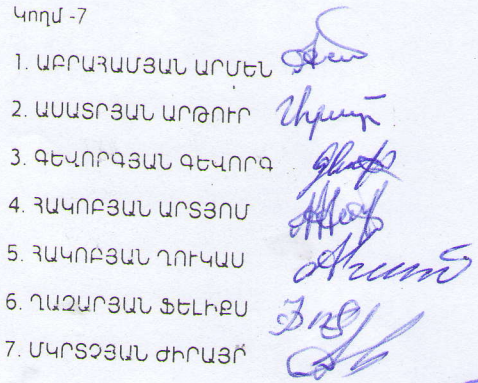 Կողմ -7
1. ԱԲՐԱՀԱՄՅԱՆ ԱՐՄԵՆ
2. ԱՍԱՏՐՅԱՆ ԱՐԹՈՒՐ
3. ԳԵՎՈՐԳՅԱՆ ԳԵՎՈՐԳ
4. ՀԱԿՈԲՅԱՆ ԱՐՏՅՈՄ
5. ՀԱԿՈԲՅԱՆ ՂՈՒԿԱՍ
6. ՂԱԶԱՐՅԱՆ ՖԵԼԻՔՍ
7. ՄԿՐՏՉՅԱՆ ԺԻՐԱՅՐ